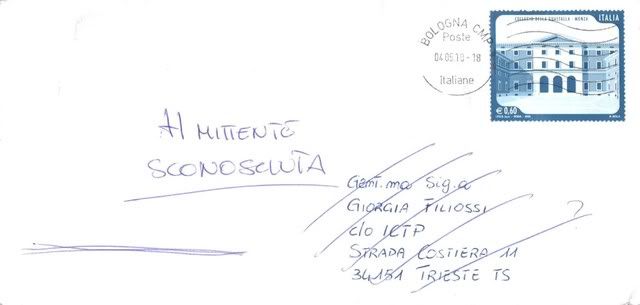 COLLEGIO DELLA GUASTALLA - MONZA ITALIA
BOLOGNA CMP
Poste
04.05.10-18
Italiane
€ 0,60
Al MITTENTE
SCONOSCIUTA
Gent.ma Sig.a
GIORGIA FILIOSSI
c/o ICTP
STRADA COSTIERA 11
34151 TRIESTE TS
?